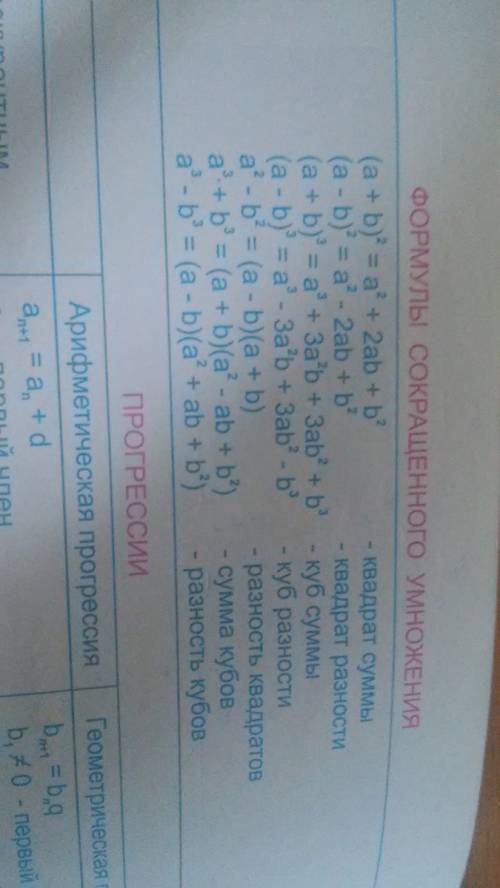 ФОРМУЛЫ СОКРАЩЕННОГО УМНОЖЕНИЯ
(a + b)² = a² + 2ab + b² - квадрат суммы
(a - b)² = a² - 2ab + b² - квадрат разности
(a + b)³ = a³ + 3a²b + 3ab² + b³ - куб суммы
(a - b)³ = a³ - 3a²b + 3ab² - b³ - куб разности
a² - b² = (a - b)(a + b) - разность квадратов
a³ + b³ = (a + b)(a² - ab + b²) - сумма кубов
a³ - b³ = (a - b)(a² + ab + b²) - разность кубов
ПРОГРЕССИИ
Арифметическая прогрессия
Геометрическая
aₙ₊₁ = aₙ + d
bₙ₊₁ = bₙq
первый член
b₁ ≠ 0 - первый